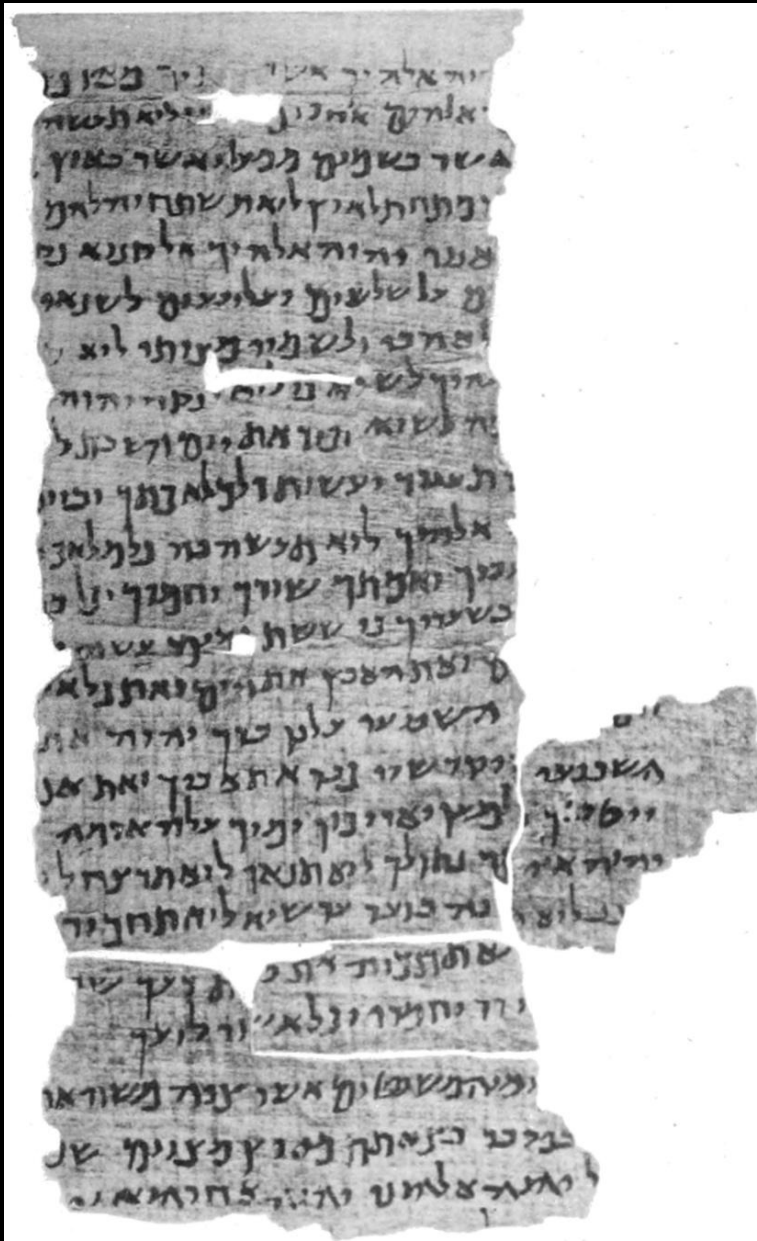 אלהיך אשר
אלהים אחרים לוא תעשה
אשר בשמים ממעל ואשר בארץ
מתחת לארץ לוא תשתחוה להם
אנכי יהוה אלהיך אל קנוא
על שלשים ועל רבעים לשנאי
לאהבי ולשמרי מצותי לוא
לוא ינקה יהוה
לשוא זכור את יום השבת ל
תעבוד ועשית כל מלאכתך וביום
אלהיך לוא תעשה בה כל מלאכה
עבדך ואמתך שורך וחמרך וכל ב
בשעריך כי ששת ימים עשה
ואת הארץ את הים ואת כל א
השביעי על כן ברך יהוה את
השביעי ויקדשיו כבד את אביך ואת אמ
ולמען יאריכון ימיך על האדמה
יהוה נתן לך לוא תנאף לוא תרצח לו
לוא ברעך עד שוא לוא תחמוד
את רעך שד
ורו וחמרו וכל אשר לרעך
ים והמשפטים אשר צוה משה את
במדבר בצאתם מארץ מצרים שמ
ל יהוה אלהינו יהוה אחד הוא